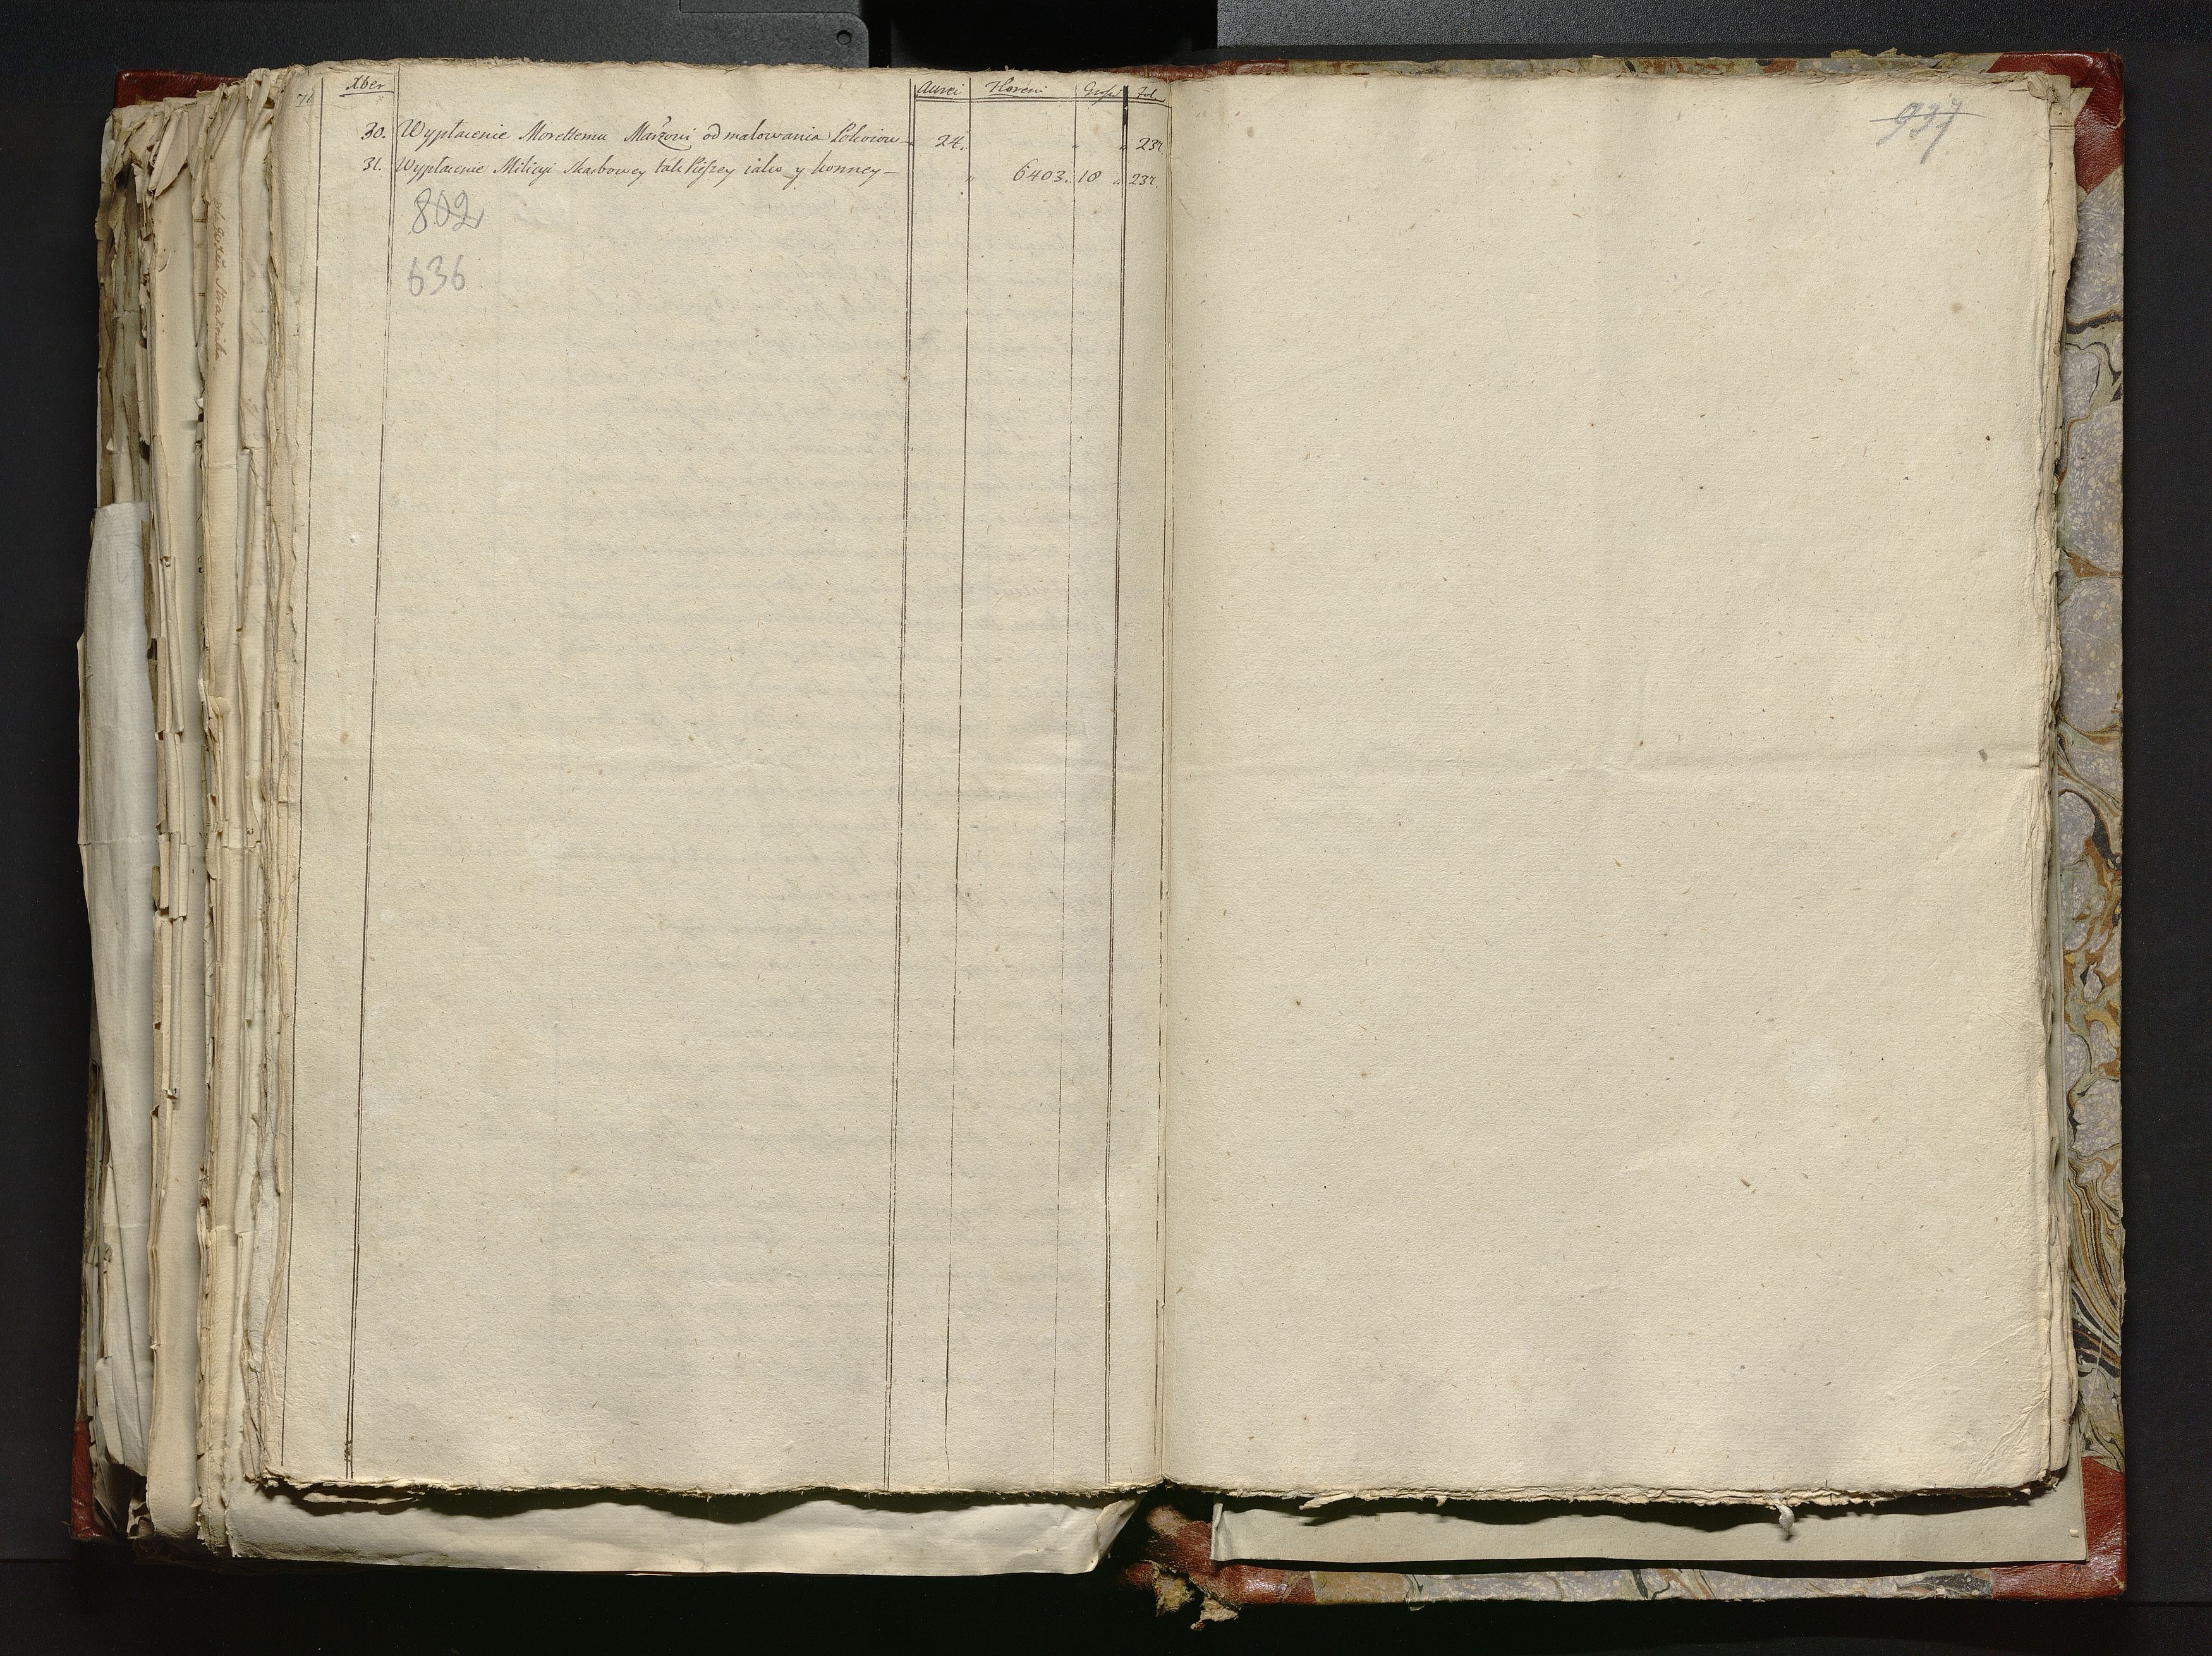 Xber Aurei Floreni Gros. Fol.
30. Wypłacenie Morettemu Marzoni od malowania Pokoiow 24. 237.
31. Wypłacenie Milicyi skarbowey tak Pieszey iako y konney 6403. 18 237.
802
636
937